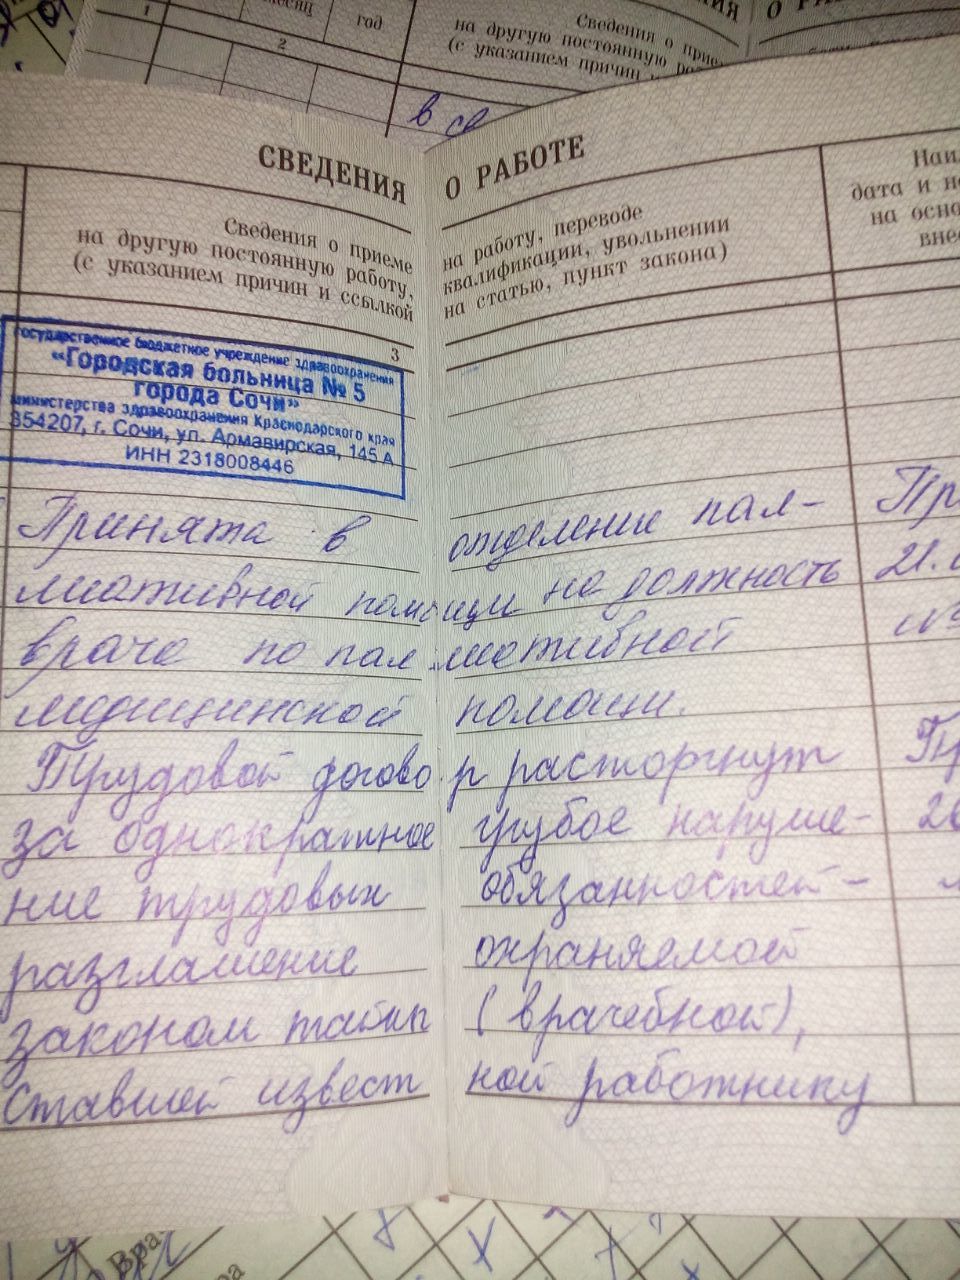 1
месяц
год
2
Сведения о прие
на другую постоянную ра
(с указанием причин и
в св
СВЕДЕНИЯ О РАБОТЕ
Сведения о приеме на работу, переводе
на другую постоянную работу, квалификации, увольнении
(с указанием причин и ссылкой на статью, пункт закона)
Наи
дата и н
на осно
внес
3
государственное бюджетное учреждение здравоохранения
«Городская больница № 5
города Сочи»
министерства здравоохранения Краснодарского края
354207, г. Сочи, ул. Армавирская, 145 А
ИНН 2318008446
Принята в отделение пал- Пр
лиативной помощи на должность 21.
врача по паллиативной №
медицинской помощи.
Трудовой договор расторгнут Пр
за однократное грубое наруше- 26
ние трудовых обязанностей -
разглашение охраняемой
законом тайны (врачебной),
ставшей известной работнику
Вра